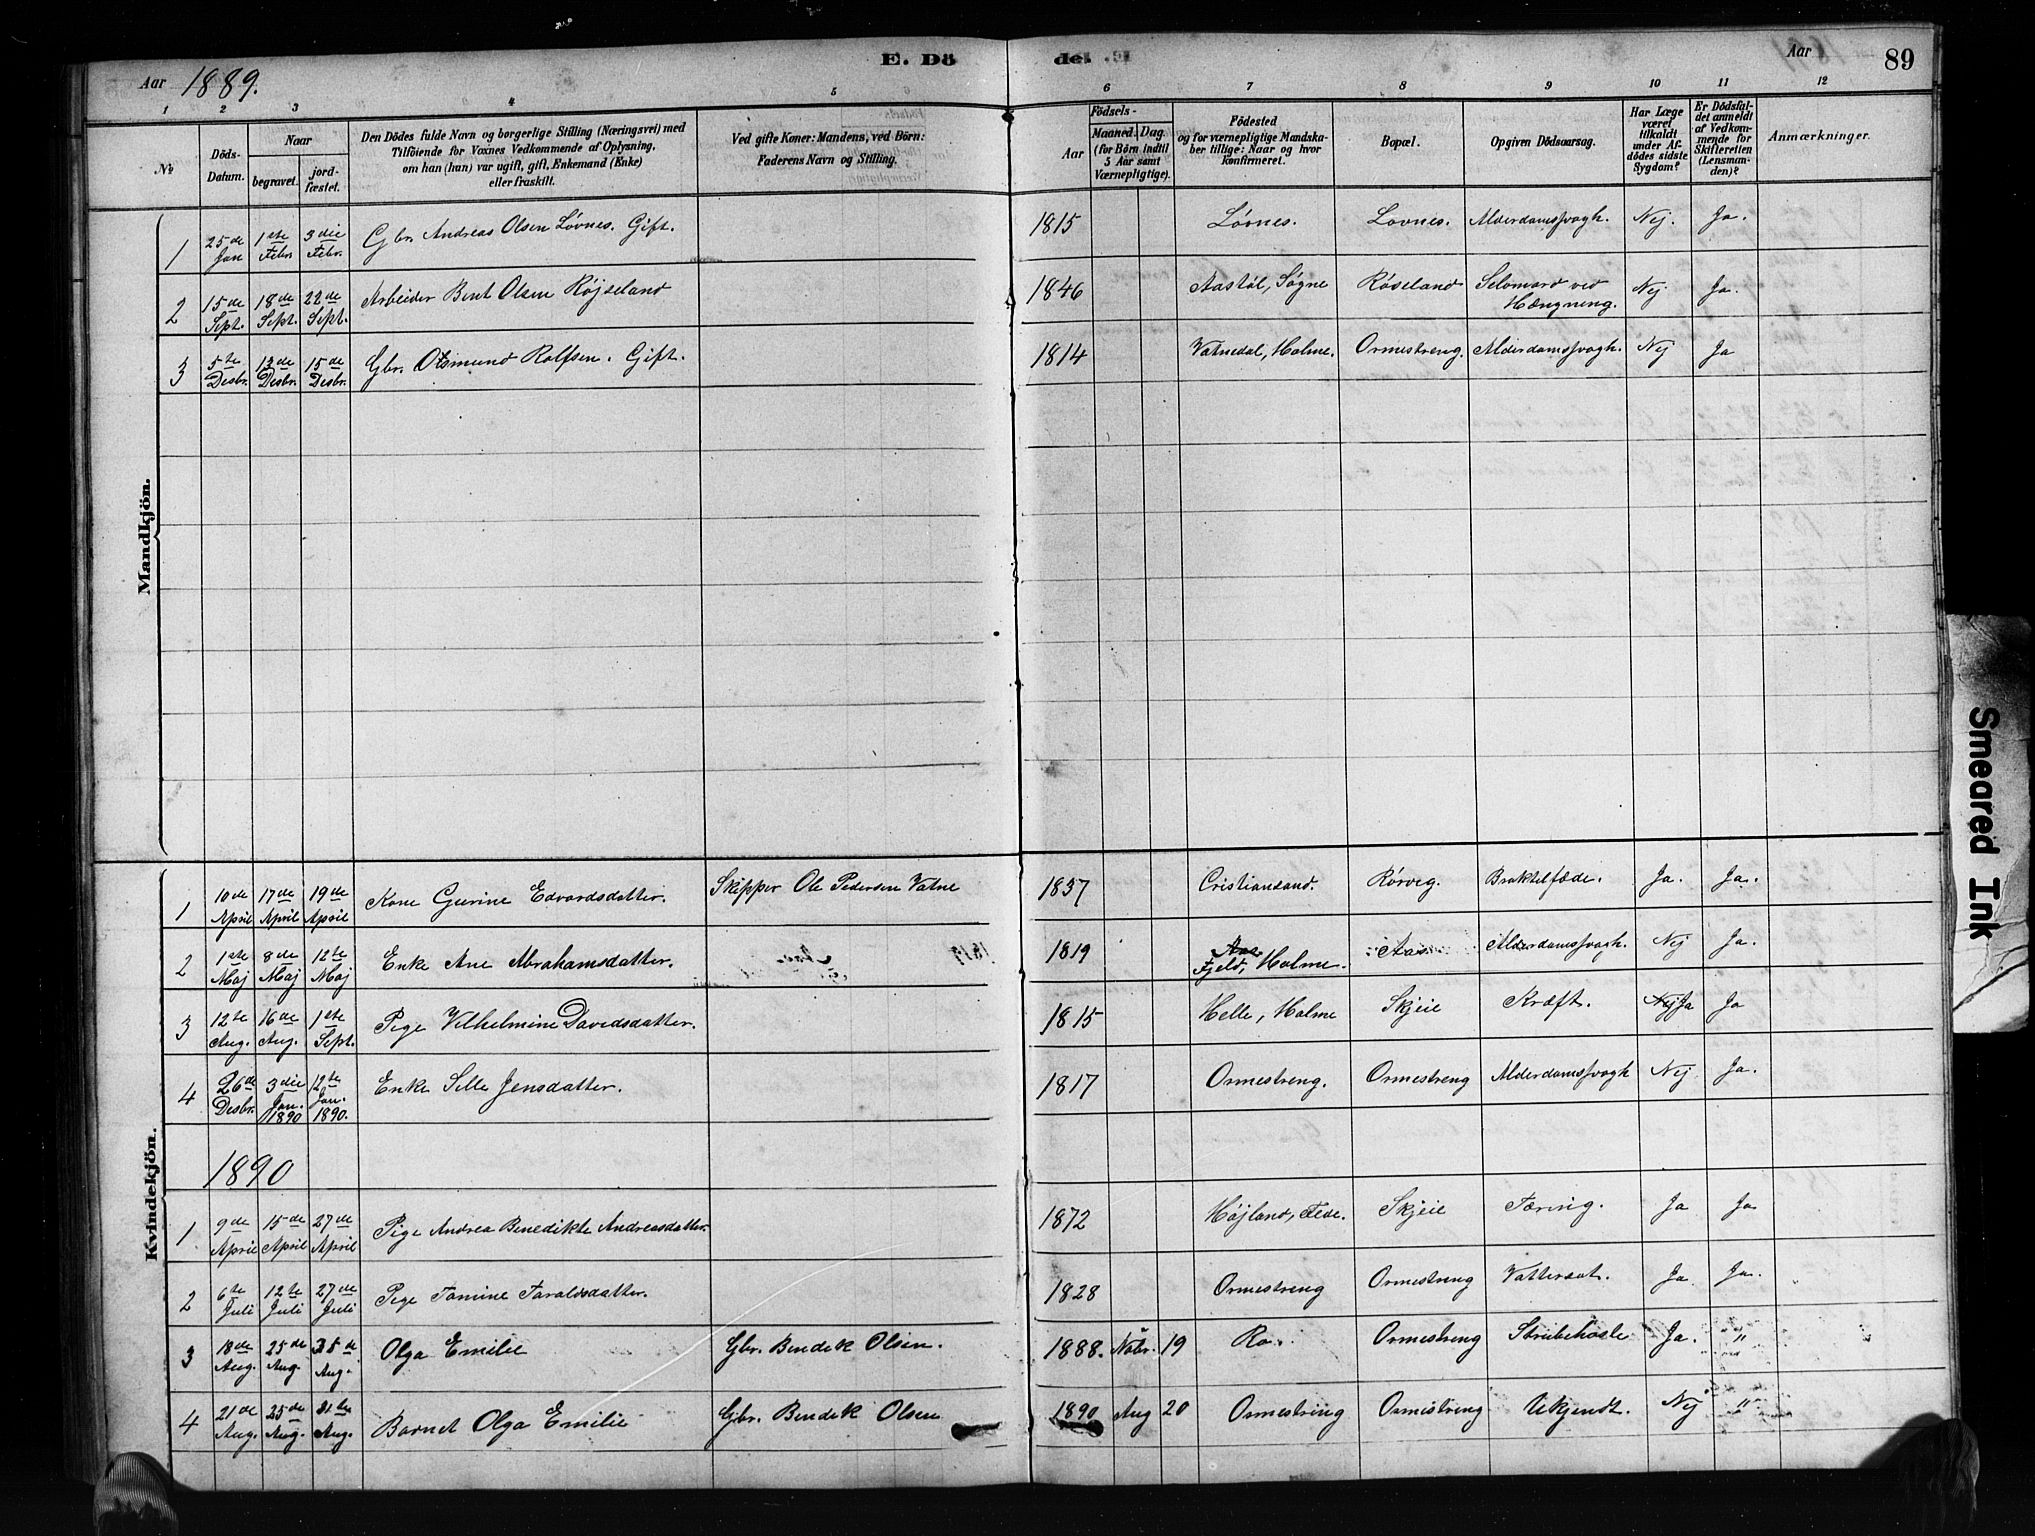 E. Dö de. 89
Aar 1889. Aar
1 2 3 4 5 6 7 8 9 10 11 12
No
Döds-Datum.
Naar
begravet. jordfæstet.
Den Dödes fulde Navn og borgerlige Stilling (Næringsvei) med
Tilföiende for Voxnes Vedkommende af Oplysning,
om han (hun) var ugift, gift, Enkemand (Enke)
eller fraskilt.
Ved gifte Koner: Mandens, ved Börn:
Faderens Navn og Stilling.
Födsels-
Aar Maaned. Dag.
(for Börn indtil 5 Aar samt Værnepligtige).
Födested
og for værnepligtige Mandskaber tillige: Naar og hvor konfirmeret.
Bopæl.
Opgiven Dödsaarsag.
Har Læge været tilkaldt under Afdödes sidste Sygdom?
Er Dödsfaldet anmeldt af Vedkommende for Skifteretten (Lensmanden)?
Anmærkninger.
Mandkjön.
1 25de Jan 1ste Febr 3die Febr. Gbr. Andreas Olsen Løvnes. Gift. 1815 Løvnes. Lovnes. Alderdomssvagh. Nej. Ja.
2 15de Sept. 18de Sept. 22de Sept. Arbeider Bent Olsen Røjseland 1846 Aastøl, Søgne Røseland Selvmord ved Hængning. Nej Ja.
3 5te Desbr. 13de Desbr. 15de Desbr. Gbr. Osmund Rolfsen. Gift. 1814 Vatnedal, Holme. Ormestreng. Alderdomssvagh. Nej Ja
Kvindekjön.
1 10de April 17de April 19de April Kone Gurine Edvardsdatter. Skipper Ole Pedersen Vatne 1837 Cristiansand. Rørvig. Ja. Ja.
2 1ste Maj 8de Maj 12te Maj Enke Ane Abrahamsdatter. 1819 Aas Fjeld, Holme. Aas Alderdomssvagh. Nej Ja.
3 12te Aug. 16de Aug. 1ste Sept. Pige Vilhelmine Davidsdatter. 1815 Helle, Holme Skjeie Kræft. Nej Ja Ja
4 26de Desbr. 3die Jan. 1890 12te Jan. 1890. Enke Sille Jensdatter. 1817 Ormestreng. Ormestreng Alderdomssvagh Nej Ja.
1890
1 9de April 15de April 27de April Pige Andrea Benedikte Andreasdatter. 1872 Højland, Fede. Skjeie Tæring. Ja Ja
2 6te Juli 12te Juli 27de Juli Pige Tomine Taraldsdatter. 1828 Ormestreng Ormestreng Vattersot. Ja Ja.
3 18de Aug. 25de Aug. 25de Aug. Olga Emilie Gbr. Bendik Olsen. 1888. Nobr. 19 Ro. Ormestreng Strubehoste Ja. "
4 21de Aug. 25de Aug. 31te Aug. Barnet Olga Emilie Gbr. Bendik Olsen 1890 Aug 20 Ormestring Ormistreng Ukjendt. Nej "
Smeared Ink